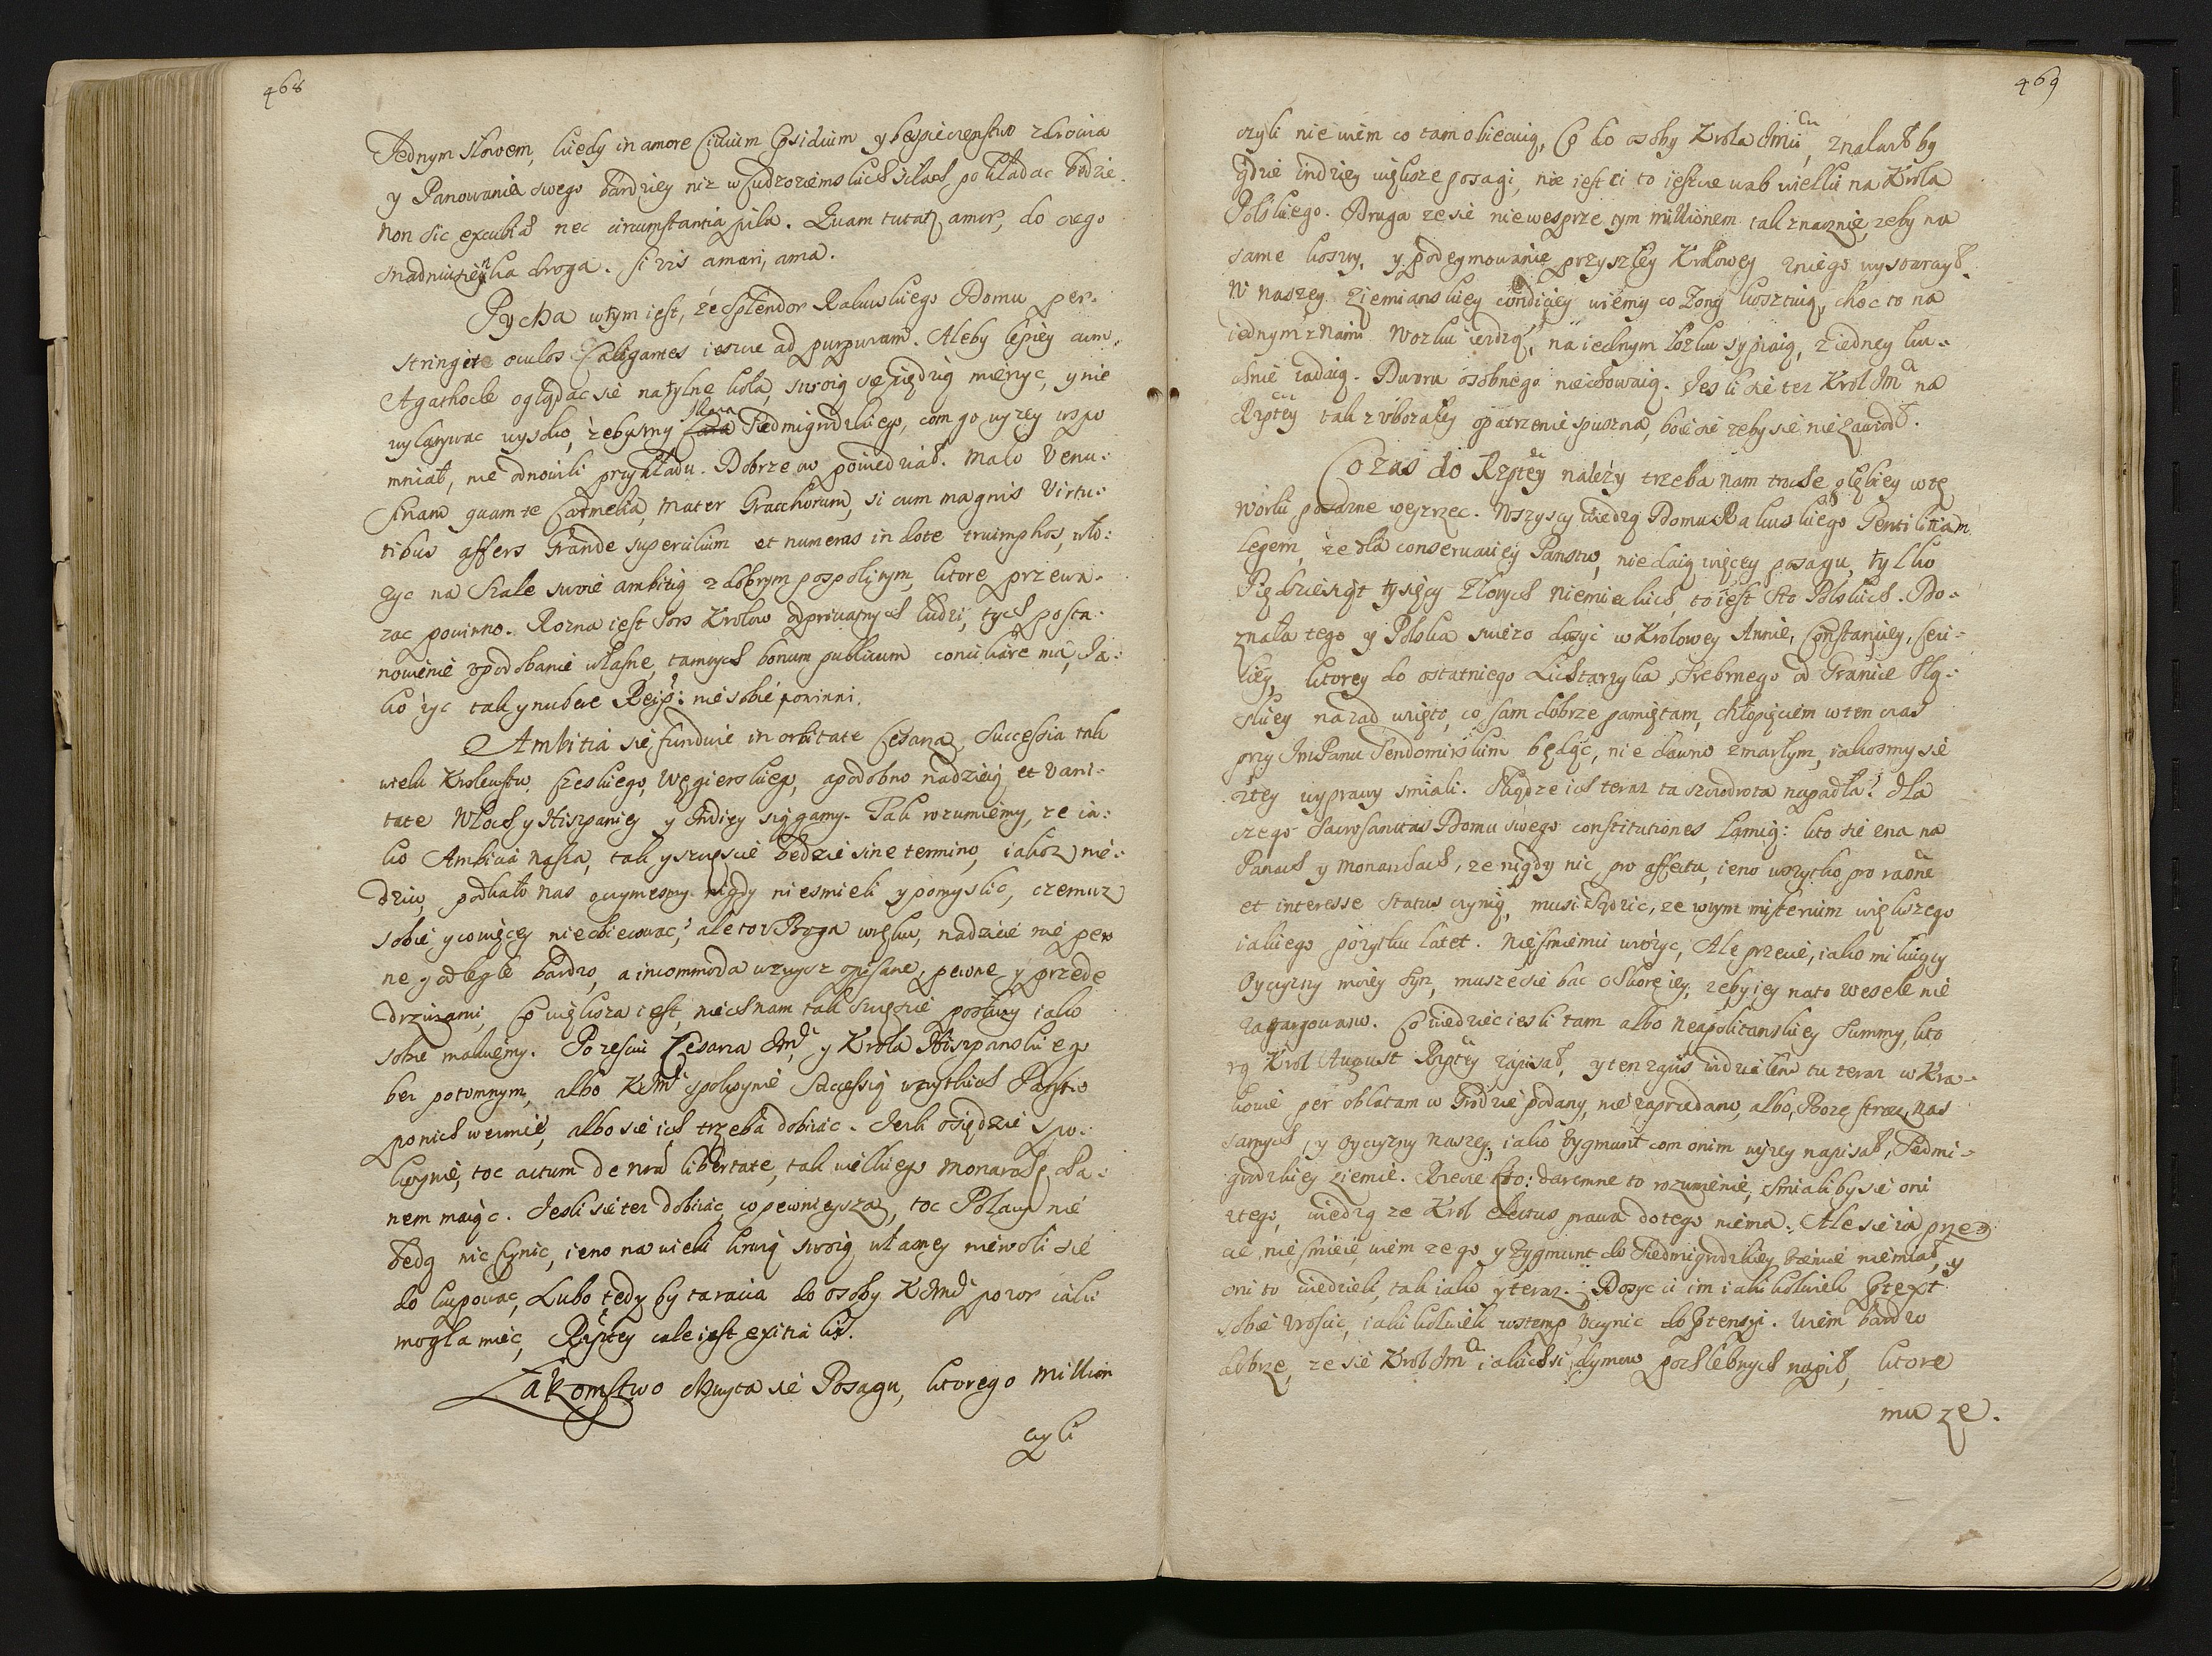 468
Jednym słowem, kiedy in amore Civium Csidium y bespieczenstwo zdrowia
y Panowania swego bardziey niz w Cudzoziemskich siłach pokładac będzie.
Non sic excubiæ nec circumstantia pila. Quam tutatr amor, do czego
snadniusienka droga. Si vis amari, ama.
Pycha w tym iest, że Splendor Rakuskiego Domu per-
stringere oculos Caligantes ieszcze ad purpuram. Aleby lepiey cum
Agathocle oglądac się na tylne koła, swoią się piędzią mierzyc, y nie
wylatywac wysoko, żebysmy Jana Siedmigrodzkiego, com go wyzey wspo
mniał, nie odnowili przykładu. Dobrze ow powiedział. Malo Venu-
sinam quam te Cornelia, Mater Gracchorum, si cum magnis Virtu-
tibus affers Grande supercilium et numeras in dote triumphos, wło-
zyc na Szale swoie ambitią z dobrym pospolitym, ktore przewa-
zac powinno. Rozna iest Sors Krolow od prywatnych ludzi, tych posta-
nowienie upodobanie własne, tamtych bonum publicum conciliare ma, Ja-
ko życ tak y nubere Reip: nie sobie powinni.
Ambitia się funduie in orbitate Cesarza, Successia tak
wielu Krolewstw Czeskiego, Węgierskiego, a podobno nadzieią et vani-
tate Włoch y Hiszpaniey y Indiey sięgamy. Tak rozumiemy, ze ia-
ko Ambicia nasza, tak y szczęscie będzie sine termino, iakoz nie-
dziw, potkało nas o czymesmy nigdy niesmieli y pomyslic, czemuz
sobie y co więcey nie obiecowac, ale to u Boga w ręku, nadzieie nie pew
ne y odległe bardzo, a incommoda wzwysz opisane, pewne y przede
drzwiami, Co większa iest, niech nam tak szczęscie posłuzy iako
sobie maluiemy. Po zesciu Cesarza Jmci y Krola Hiszpanskiego
bez potomnym, albo KJMci spokoynie Successią wszytkich Panstw
po nich wezmie, albo się ich trzeba dobiiac. Jesli osiędzie spo-
koynie, toc actum de nra libertate, tak wielkiego Monarchę Pa-
nem maiąc. Jesli się tez dobiiac, co pewnieysza, toc Polacy nie
będą nic czynic, ieno na wieki krwią swoią własney niewoli się
do kupowac, Lubo tedy by ta racia do osoby KJMci pozor iaki
mogła miec, Rzptey cale iest exitialis.
Łakomstwo chwyta się Posagu, ktorego Million
czyli
469
czyli nie wiem co tam obiecuią, Co do osoby Krola Jmci, znalazł by
gdzie indziey większe posagi, nie iest ci to ieszcze wab wielki na Krola
Polskiego. Druga ze się niewesprze tym millionem tak znacznie, zeby na
same koszty, y podeymowanie przyszłey Krolowey z niego wystarczył.
W naszey Ziemianskiey condiciey wiemy co Zony kosztuią, choc to na
iednym z Nami Wozku iezdzą, na iednym łozku sypiaią, z iedney ku-
chnie iadaią. Dworu osobnego nie chowaią. Jesli się tez Krol Jmc na
Rzptey tak zubozałey opatrzenie spuszcza, boię się zeby się nie zawiodł.
Co zas do Rzptey należy trzeba nam trochę głębiey w tę
Worki posazne weyzrzec. Wszyscy wiedzą Domu Rakuskiego Gentilitiam
Legem, że dla conserwaciey Panstw, nie daią więcey posagu, tylko
Pięćdziesiąt tysięcy Złotych Niemieckich, to iest Sto Polskich. Do-
znała tego y Polska swiezo dosyć w Krolowey Annie, Constanciey, Ceci-
liey, ktorey do ostatniego Lichtarzyka Srebrnego od Granice Slą-
skiey nazad wzięto, co sam dobrze pamiętam, chłopięciem w ten czas
przy JmPanu Sendomirskim będąc, nie dawno zmarłym, iakosmy się
z tey wyprawy smiali. Skądze ich teraz ta szczodrota napadła? Dla
czego Sacrosanctas Domu swego constitutiones łamią: kto się zna na
Panach y Monarchach, ze nigdy nic pro affectu, ieno wszytko pro raone
et interesse Status czynią, musi sądzic, ze w tym misterium większego
iakiego pożytku latet. Nieśmiem wrózyc, Ale przecie, iako miłuiący
Oyczyzny moiey Syn, muszę się bac o skorę iey, zeby iey na to wesele nie
zatargowano. Co wiedziec iesli tam albo Neapolitanskiey Summy, kto
rą Krol August Rzptey zapisał, y ten zapis widziałem tu teraz w Kra-
kowie per oblatam w Grodzie podany, nie zaprzedano, albo, Boze strzez, nas
samych, y Oyczyzny naszey, iako Zygmunt com o nim wyzey napisał, Siedmi-
grodzkiey ziemie. Rzecze kto: daremne to rozumienie, smialiby się oni
z tego, wiedzą ze Krol electus prawa do tego niema. Ale się ia prze
cie nie smieię, wiem ze go y Zygmunt do Siedmigrodzkiey ziemie niemiał, y
oni to wiedzieli, tak iako y teraz. Dosyc ci im iaki kolwiek Ptext
sobie uroscic, iaki kolwiek wstemp uczynic do Ptensyi. Wiem bardzo
dobrze, ze się Krol Jmc iakichsi dymow pochlebnych napił, ktore
mu ze.